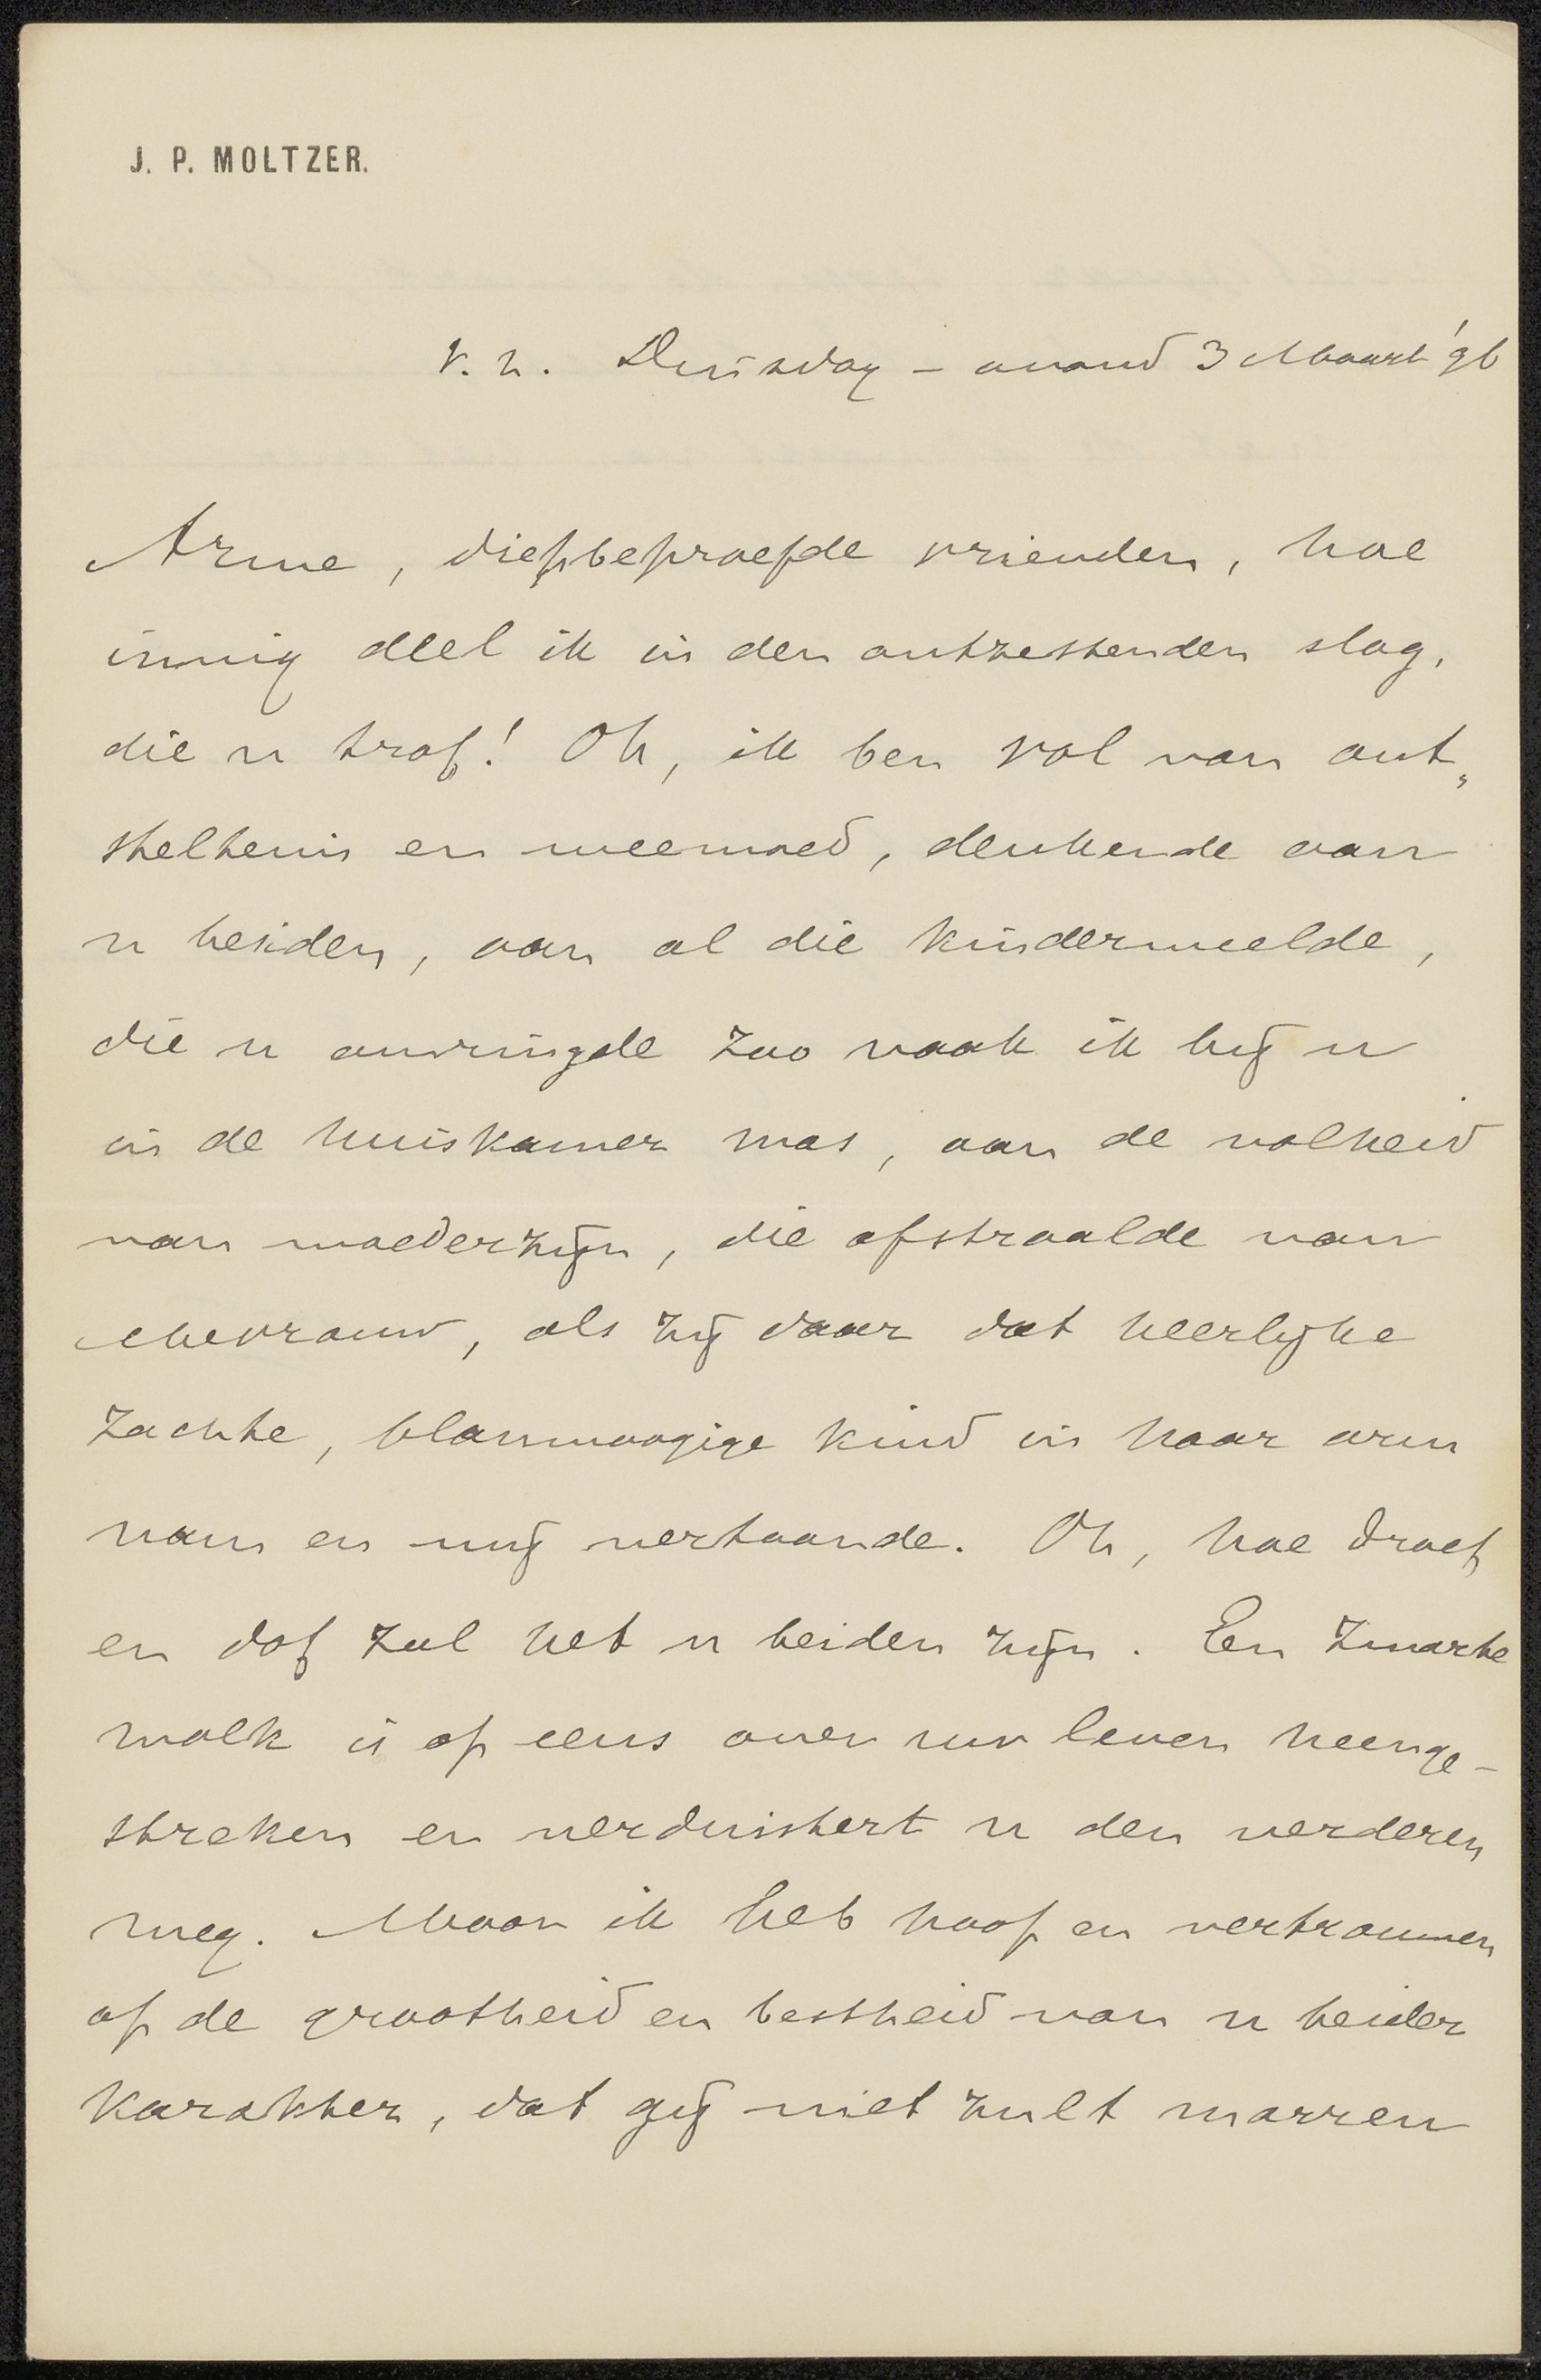 J. P. MOLTZER.
V. h. Dinsdag - avond 3 Maart '96
Arme, diepbeproefde vrienden, hoe
innig deel ik in den ontzettenden slag,
die u trof! Oh, ik ben vol van ont„
steltenis en weemoed, denkende aan
u beiden, aan al die kinderweelde,
die u omringde zoo vaak ik bij u
in de huiskamer was, aan de volheid
van moederzijn, die afstraalde van
Mevrouw, als zij daar dat heerlijke
zachte, blauwoogige kind in haar arm
nam en mij vertoonde. Oh, hoe droef
en dof zal het u beiden zijn. Een zwarte
wolk is op eens over uw leven heenge-
streken en verduistert u den verderen
weg. Maar ik heb hoop en vertrouwen
op de grootheid en bestheid van u beider
karakter, dat gij niet zult morren